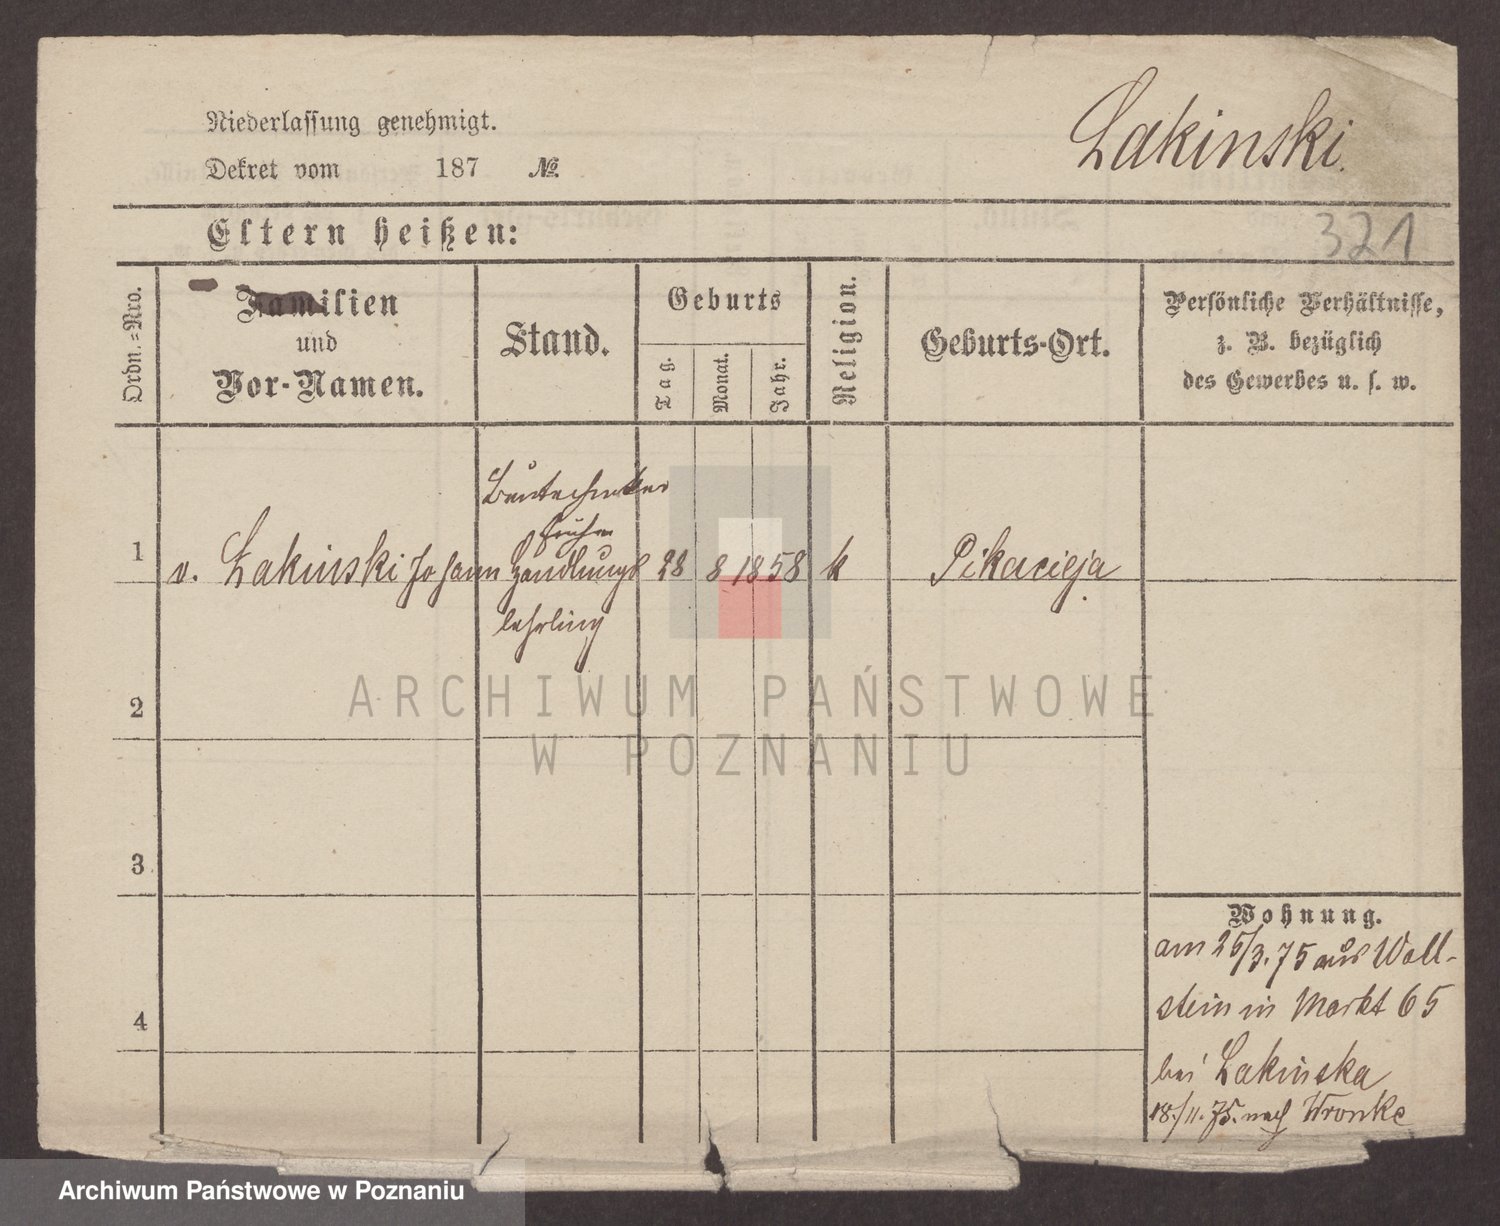 Niederlassung genehmigt.
Dekret vom 187 №
Lakinski.
Eltern heißen:
321
Ordn.=Nro.
Familien
und
Vor-Namen.
Stand.
Geburts
Tag.
Monat.
Jahr.
Religion.
Geburts-Ort.
Persönliche Verhältnisse,
z. B. bezüglich
des Gewerbes u. s. w.
Bautechniker
früher
1 v. Lakinski Johann Handlungs 28 8 1858 k Pikacieja
lehrling
2
ARCHIWUM PAŃSTWOWE
W POZNANIU
3
Wohnung.
am 26/3.75 aus Woll-
stein in Markt 65
4
bei Lakinska
18./11.75. nach Wronke
Archiwum Państwowe w Poznaniu